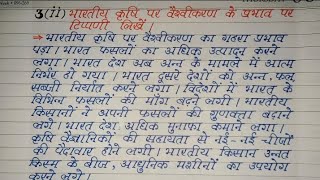 3(ii) भारतीय कृषि पर वैश्वीकरण के प्रभाव पर
टिप्पणी लिखें
→ भारतीय कृषि पर वैश्वीकरण का गहरा प्रभाव
पड़ा। भारत फसलों का अधिक उत्पादन करने
लगा। भारत देश अब अन्न के मामले में आत्म
निर्भर हो गया। भारत दूसरे देशों को अन्न, फल
सब्जी निर्यात करने लगा। विदेशों में भारत के
विभिन्न फसलों की माँग बढ़ने लगी। भारतीय
किसानों ने अपनी फसलों की गुणवत्ता बढ़ाने
लगे। भारत देश अधिक मुनाफा कमाने लगा।
कृषि वैज्ञानिकों की सहायता से नई-नई चीजों
की पैदावार होने लगी। भारतीय किसान उन्नत
किस्म के बीज, आधुनिक मशीनों का उपयोग
करने लगे।